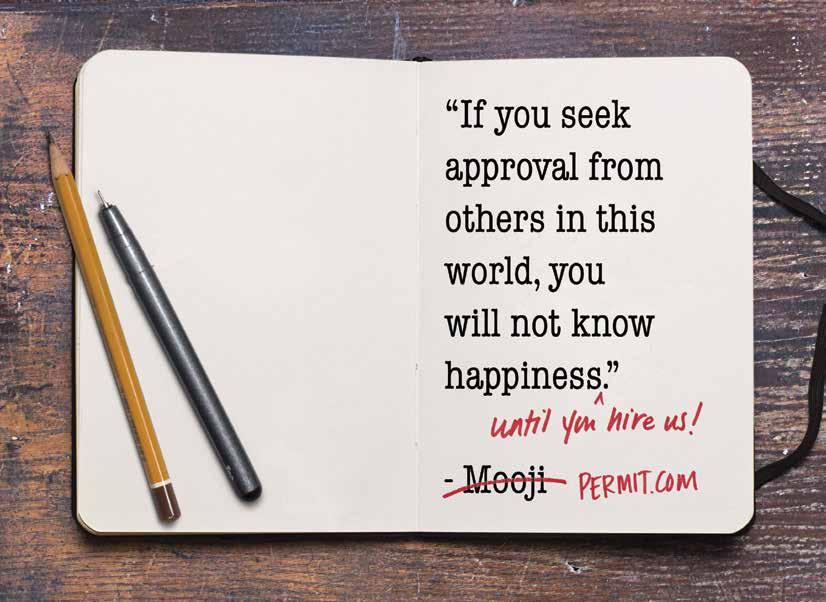 “If you seek
approval from
others in this
world, you
will not know
happiness.”
^
until you hire us!
- Mooji PERMIT.COM